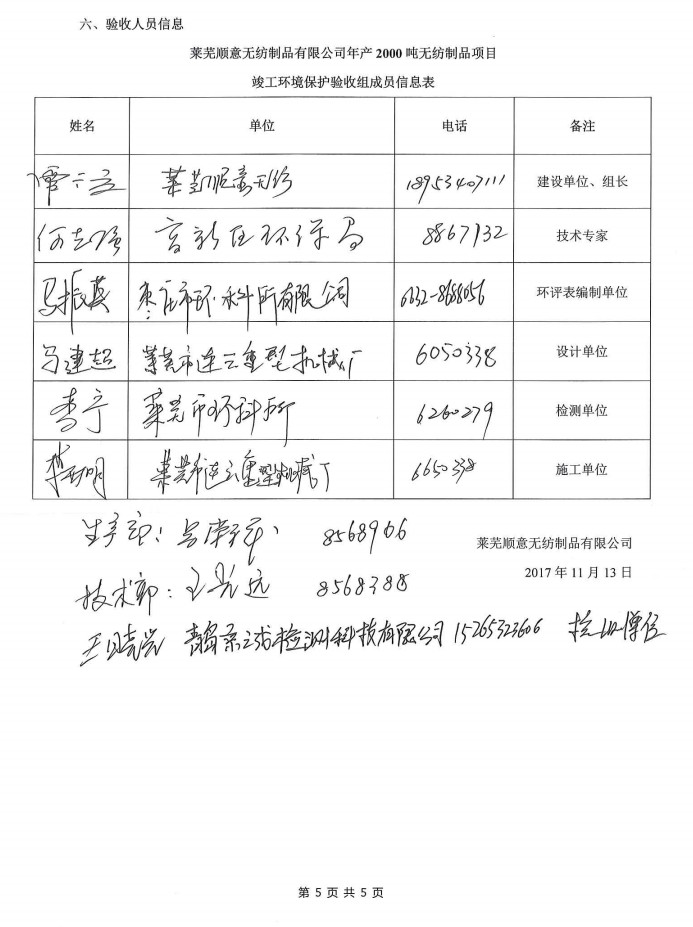 六、验收人员信息
莱芜顺意无纺制品有限公司年产 2000 吨无纺制品项目
竣工环境保护验收组成员信息表
姓名 单位 电话 备注
莱芜顺意无纺 18953407111 建设单位、组长
何志强 高新区环保局 8867132 技术专家
马振英 枣庄市环科所有限公司 0632-8688056 环评表编制单位
马建超 莱芜市连云重型机械厂 6050338 设计单位
李宁 莱芜市环科所 6260279 检测单位
明 莱芜市连云重型机械厂 6650338 施工单位
生产部: 8568906
莱芜顺意无纺制品有限公司
2017 年 11 月 13 日
技术部: 王光远 8568388
王晓岩 青岛京诚检测科技有限公司 15265323606 单位
第 5 页 共 5 页